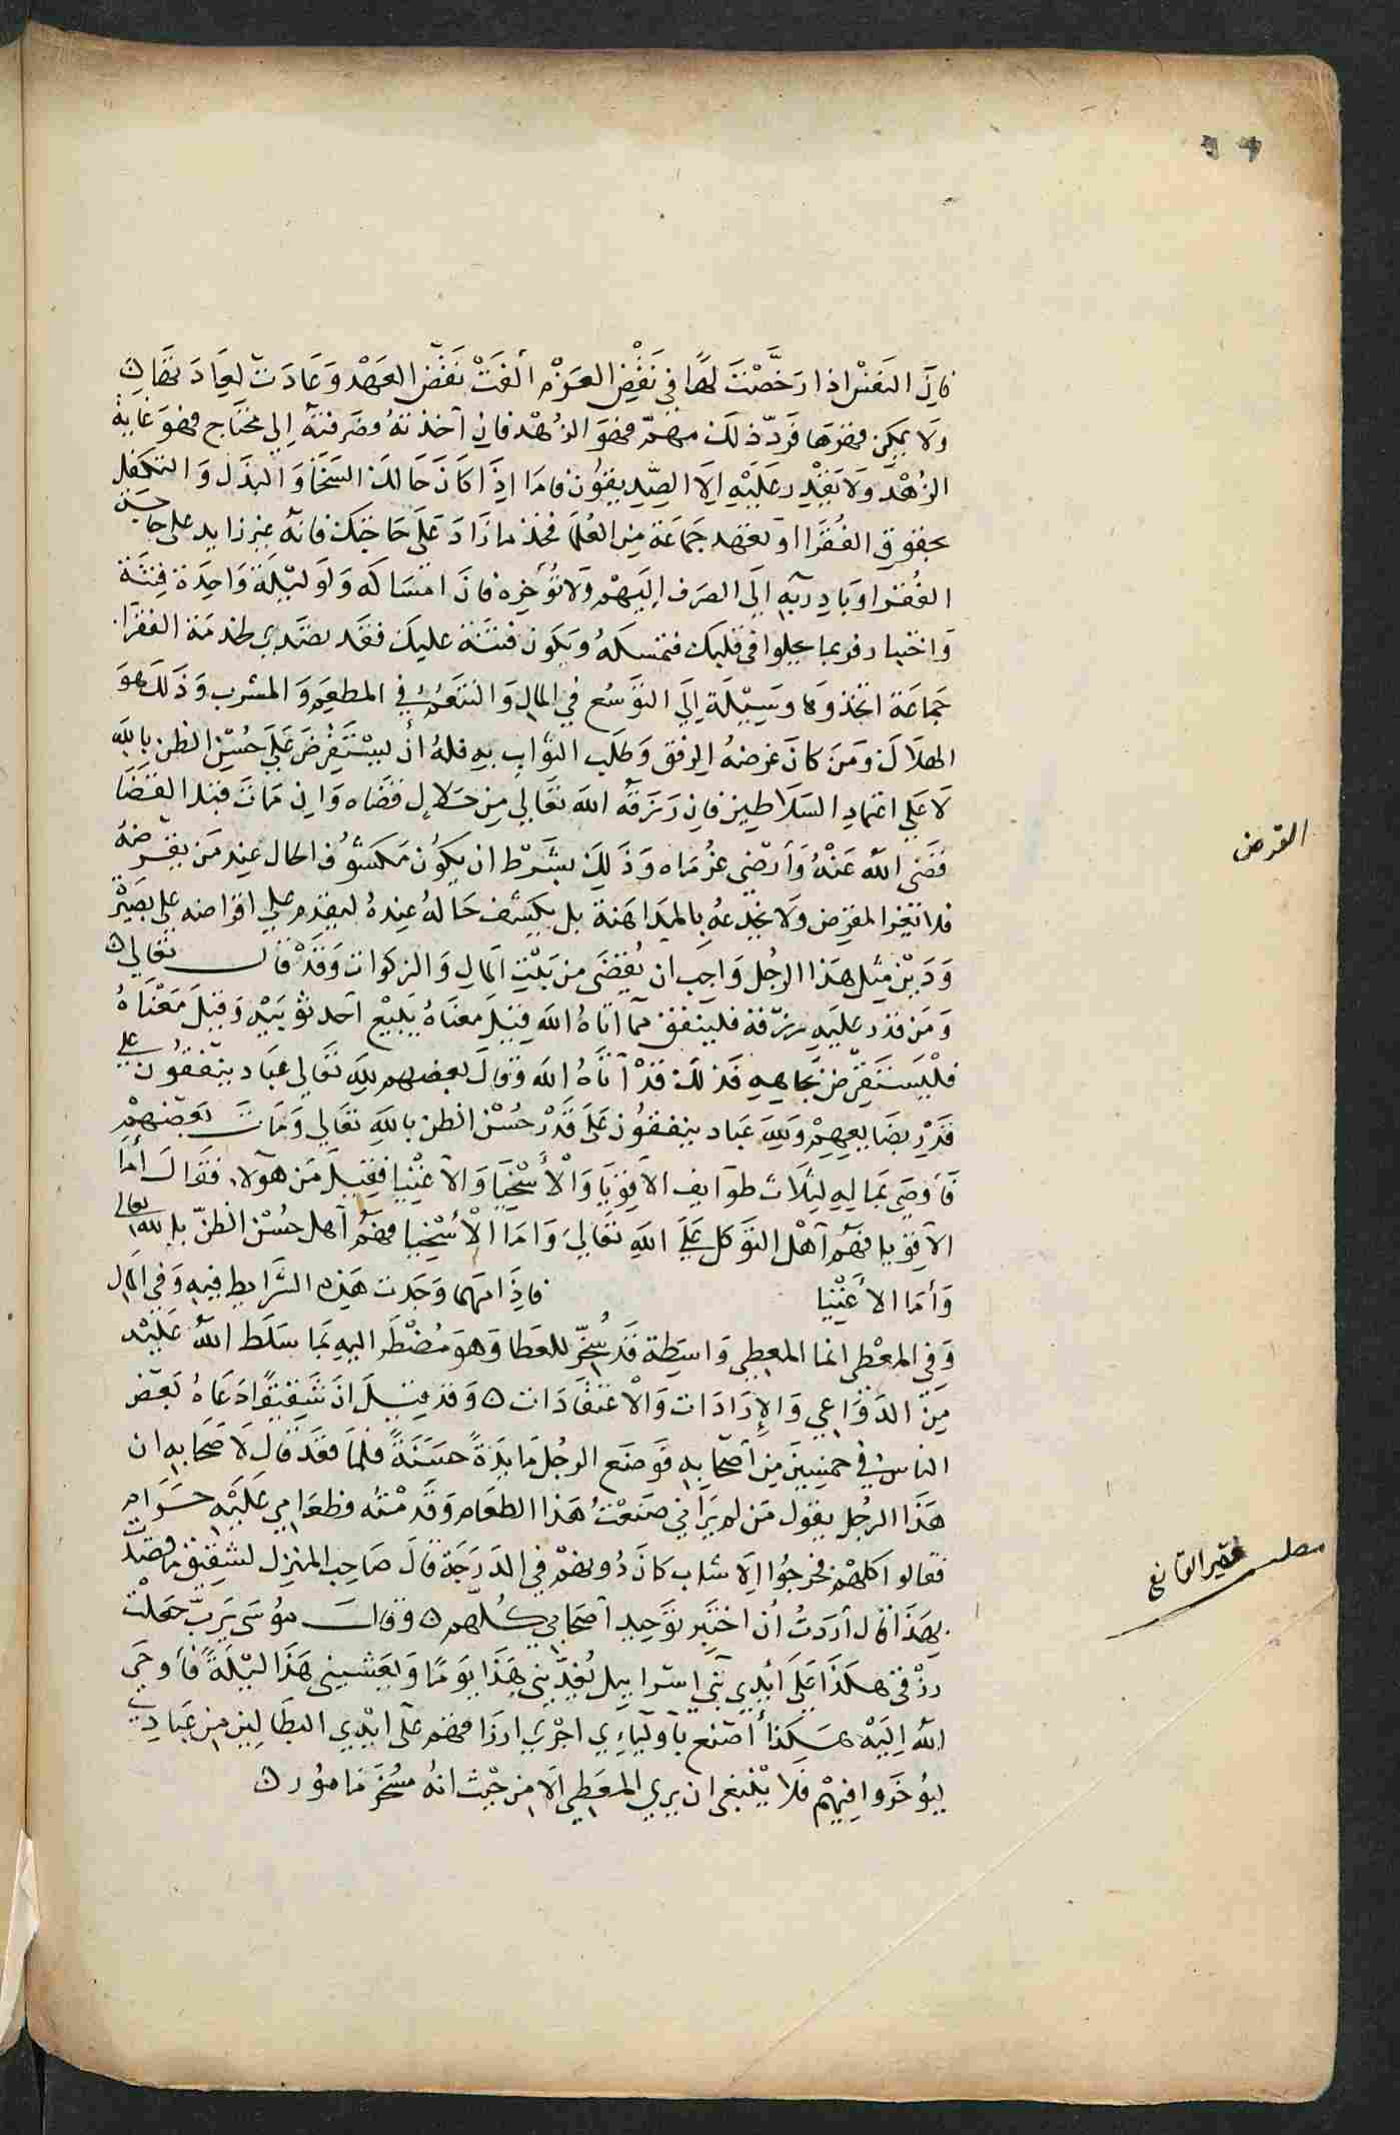 فان النفس اذا رخصت لها في نقض العزم ألفت نقض العهد وعادت لعادتها
ولا يمكن قهرها فرد ذلك مهم فهو الزهد فان اخذته وصرفته الى محتاج فهو غاية
الزهد ولا يقدر عليه الا الصديقون فاما اذا كان حالك السخا والبذل والتكفل
بحقوق الفقرا او تعهد جماعة من العلما فخذ ما زاد على حاجتك فانه غير زايد على حاجة
الفقرا وبادر به الى الصرف اليهم ولا تؤخره فان امساكه ولو ليلة واحدة فتنة
واختبار فربما يحلوا في قلبك فتمسكه ويكون فتنة عليك فقد تصدى لخدمة الفقرا
جماعة اتخذوها وسيلة الى التوسع في المال والتنعم في المطعم والمشرب وذلك هو
الهلاك ومن كان غرضه الرفق وطلب الثواب به فله أن يستقرض على حسن الظن بالله
لا على اعتماد السلاطين فان رزقه الله تعالى من حلال قضاه وان مات قبل القضا
قضى الله عنه وأرضى غرماه وذلك بشرط ان يكون مكشوف الحال عند من يقرضه
فلا تغر المقرض ولا يخدعه بالمداهنة بل يكشف حاله عنده ليقدم على اقراضه على بصيرة
ودين مثل هذا الرجل واجب ان يقضى من بيت المال والزكوات وقد قال تعالى
ومن قدر عليه رزقه فلينفق مما اتاه الله قيل معناه يبيع احد ثوبيه وقيل معناه
فليستقرض بجاهه فذلك قد أتاه الله وقال بعضهم لله تعالى عباد ينفقون على
قدر بضايعهم ولله عباد ينفقون على قدر حسن الظن بالله تعالى ومات بعضهم
فأوصى بماله لثلاث طوايف الاقويا والأسخيا والاغنيا فقيل من هولا فقال أما
الاقويا فهم أهل التوكل على الله تعالى واما الأسخيا فهم أهل حسن الظن بالله تعالى
وأما الأغنيا فاذا مهما وجدت هذه الشرايط فيه وفي المال
وفي المعطى انما المعطي واسطة قد سخر للعطا وهو مضطر اليه بما سلط الله عليه
من الدواعي والإرادات والاعتقادات وقد قيل ان شقيقا دعاه بعض
الناس في خمسين من أصحابه فوضع الرجل مايدة حسنة فلما قعد قال لاصحابه ان
هذا الرجل يقول من لم يراني صنعت هذا الطعام وقدمته فطعامي عليه حرام
فقاموا كلهم فخرجوا الا شاب كان دونهم في الدرجة قال صاحب المنزل لشقيق ما قصدت
بهذا قال أردت أن اختبر توحيد أصحابي كلهم وقال موسى يرب جعلت
رزقي هكذا على أيدي بني اسرائيل يغديني هذا يوما ويعشيني هذا ليلة فأوحى
الله اليه هكذا أصنع بأوليائي اجري ارزاقهم على ايدي البطالين من عبادي
ليؤجروا فيهم فلا ينبغي ان يرى المعطي الا من حيث انه مسخر مامور
القرض
مطلب فقير القانع